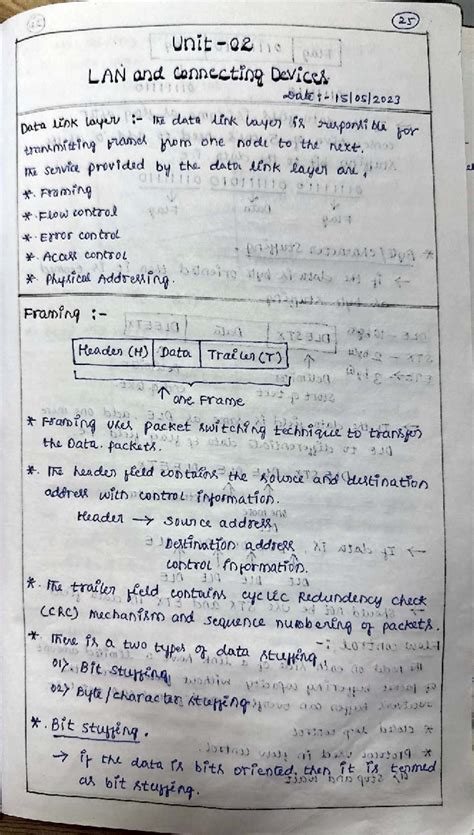 25
Unit-02
LAN and connecting Devices
Date :- 15/05/2023
Data link layer :- The data link layer is responsible for
transmitting frames from one node to the next.
The service provided by the data link layer are,
*. Framing
*. Flow control
*. Error control
*. Access control
*. Physical Addressing.
Framing :-
Header (H) Data Trailer (T)
↑ one Frame
* Framing uses packet switching technique to transfer
the Data packets.
*. The header field contains the source and destination
address with control information.
Header → source address,
Destination address,
control information.
*. The trailer field contains cyclic Redundency check
(CRC) mechanism and sequence numbering of packets.
* There is a two types of data stuffing,
01>. Bit stuffing
02> Byte/character stuffing
*. Bit stuffing.
→ if the data is bits oriented, then it is termed
as bit stuffing.